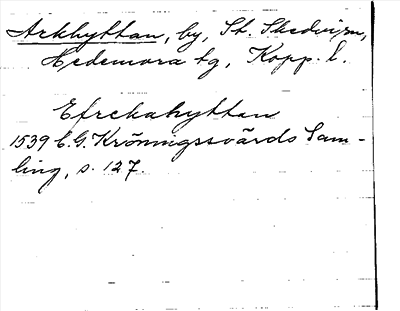 Arkhyttan, by, St. Skedvi sn,
Hedemora tg, Kopp. l.
Efrekahyttan
1539 C.G. Krönningssvärds Sam-
ling, s. 127.